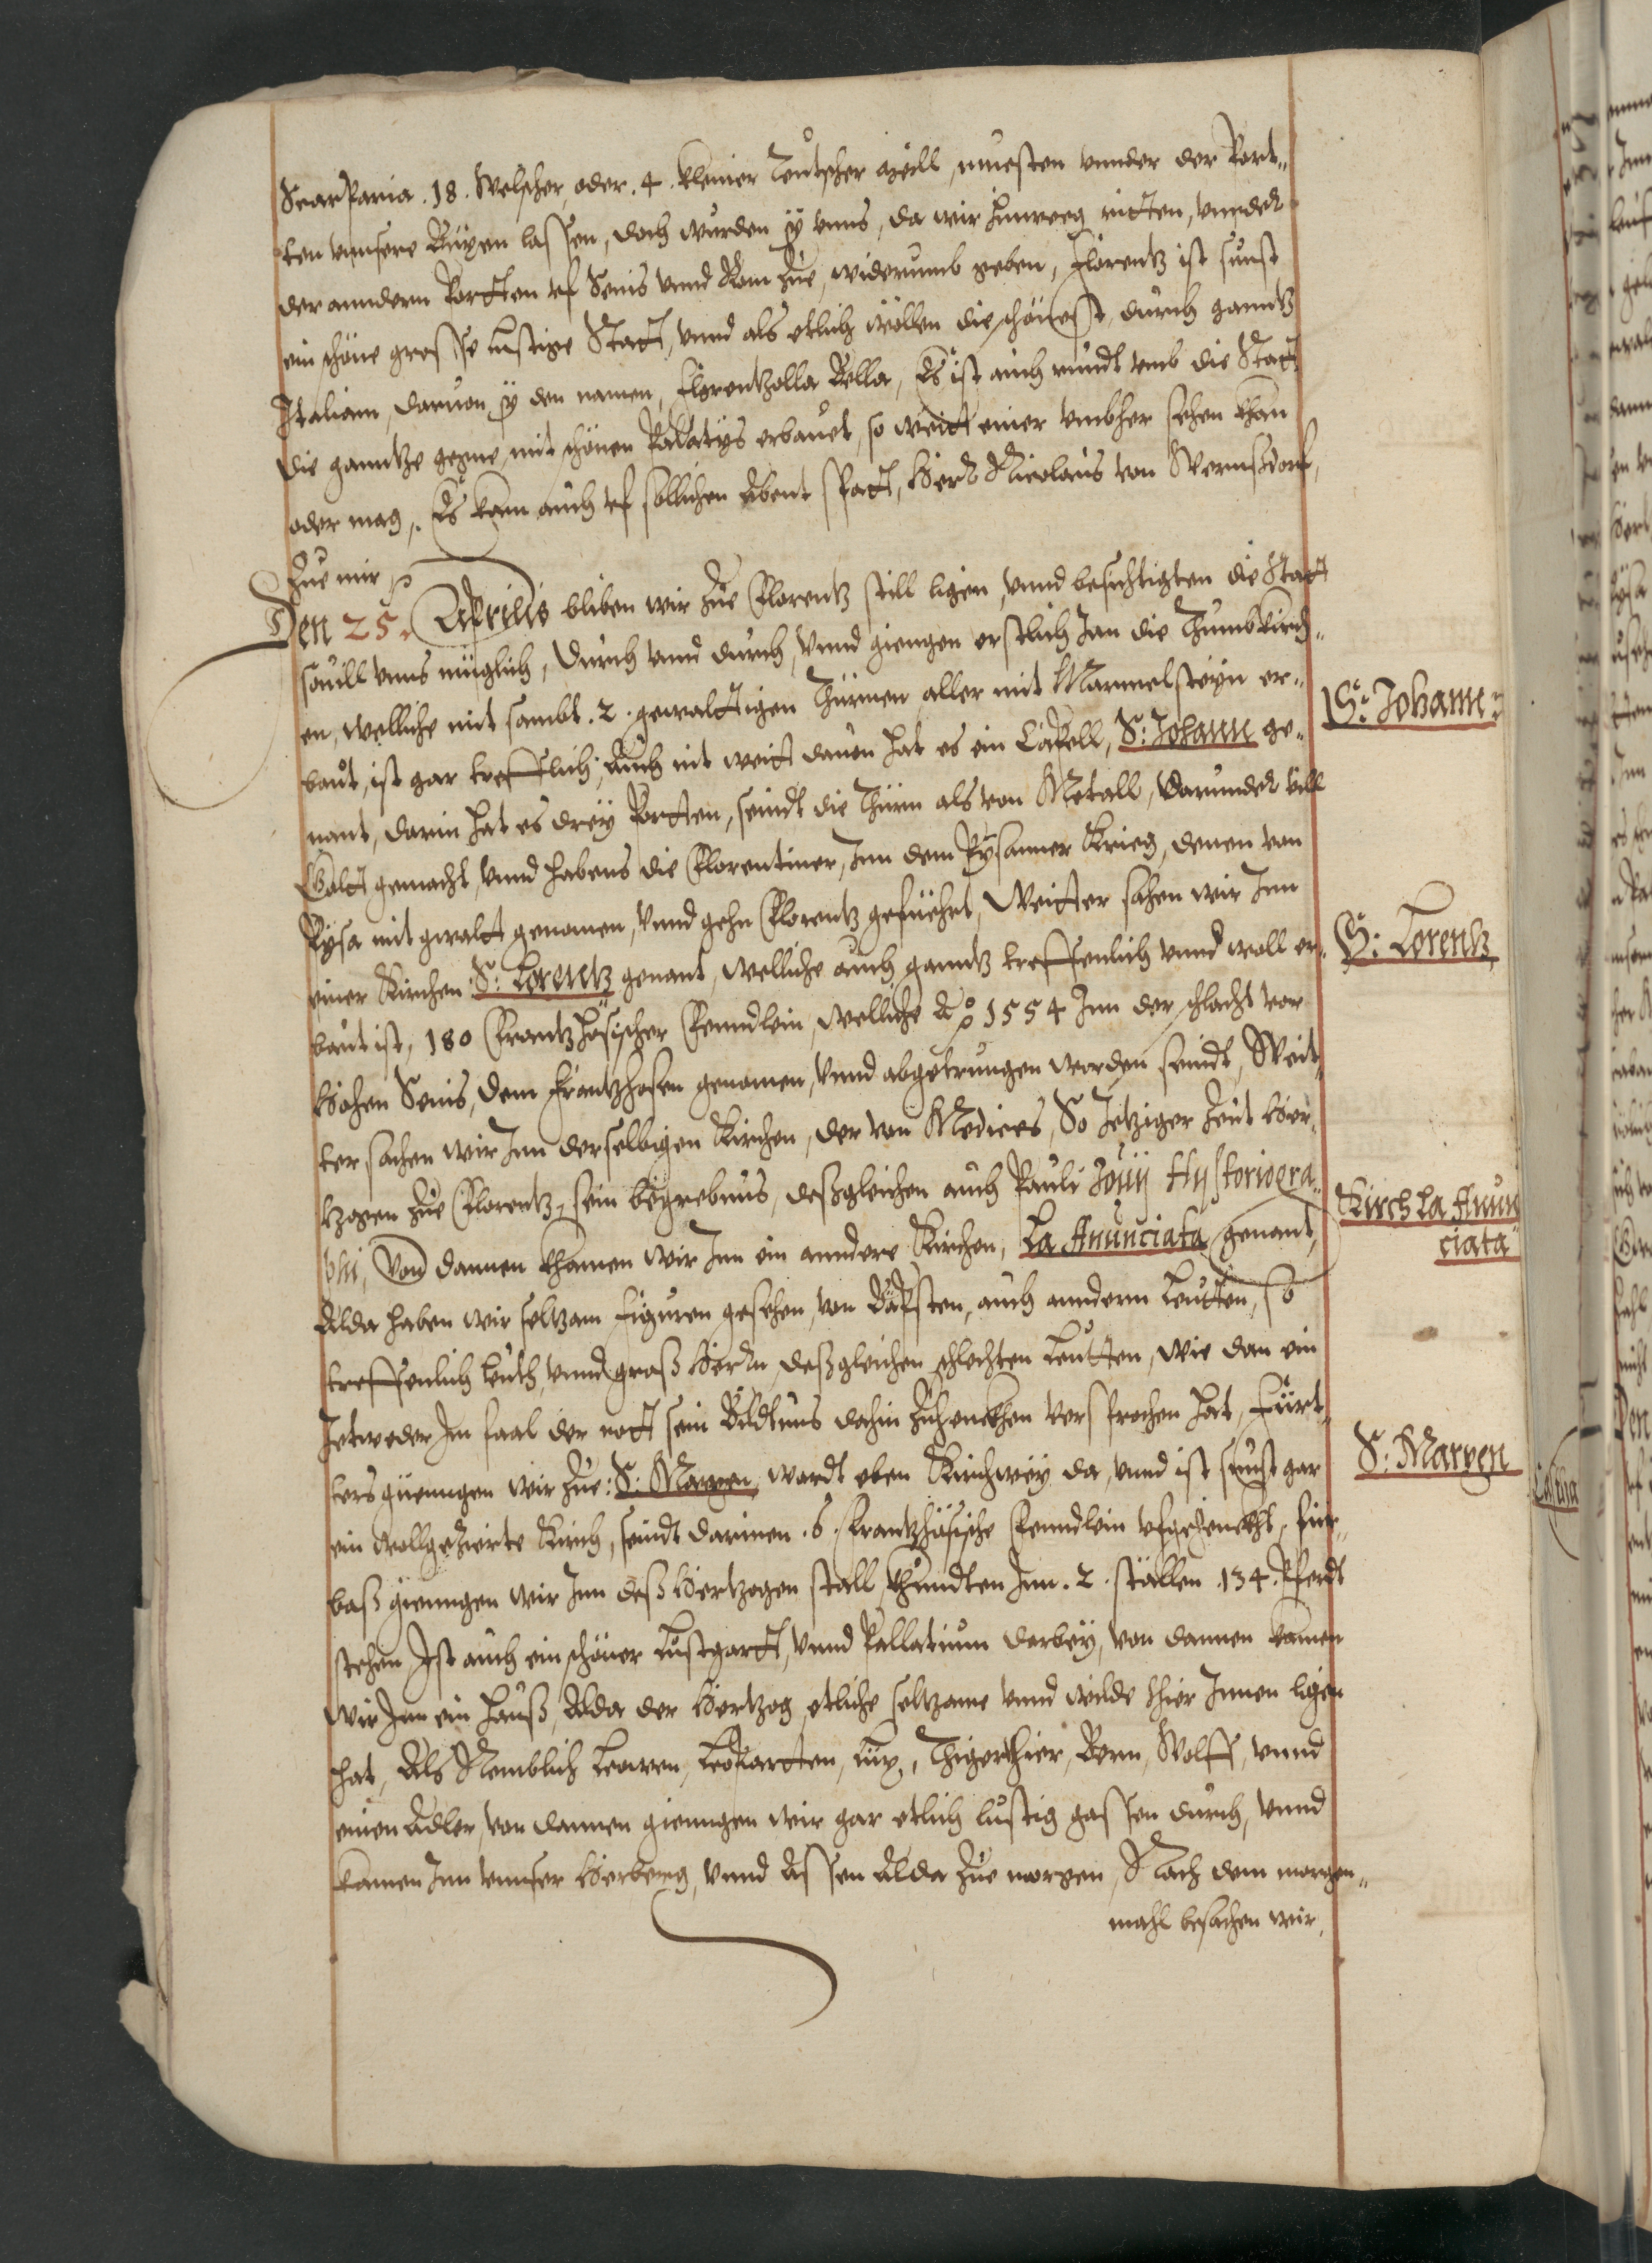 Scarparia .18. Welscher, oder .4. kleiner Teutscher meill, muesten vnnder der Port„
ten vnnsere Bugen lassen, doch wurden sy vnns, da wir hinweg ritten, vnnder
der anndern Portten uf Senis vnnd Rom zue, widerumb geben, Florentz ist sunst
ein schöne grosse lustige Statt, vnnd als etlich wöllen die schönest, durch ganntz
Italiam, daruon sy den namen, Florentzolla Bella, Es ist auch rundt vmb die Statt
die ganntze gegne, mit schönen Palatys erbauet, so weitt einer vmbher sehen khan
oder mag, Es kam auch uf sollichen Abent spatt, Herr Nicolaus von Wernsdorf,
zue mir
Den 25. Aprilis bliben wir zue Florentz still ligen, vnnd besichtigten die Statt
souill vnns müglich, durch vnnd durch, vnnd giengen erstlich Inn die Thumbkirch„
en, welliche mit sambt .2. gewalttigen Thürnen aller mit Marmelsteyn er„
baut, ist gar trefflich, Auch nit weitt dauon hat es ein Capell, S: Johann ge„
nant, darin hat es drey Portten, seindt die Thürn als von Metall, darunder vill
Goltt gemacht, vnnd habens die Florentiner, Inn dem Pysanner Krieg, denen von
Pysa mit gwaltt genomen, vnnd gehn Florentz gefüehrt, Weitter sahen wir Inn
einer Kirchen S: Lorentz genant, welliche auch ganntz treffenlich vnnd woll er„
baut ist, 180 Frantzhösischer Fenndlein, welliche Ao 1554 Inn der schlacht vor
Hohen Senis, dem Frantzhosen genomen, vnnd abgetrungen worden seindt, Weit„
ter sachen wir Inn derselbigen Kirchen, der von Medices, So Jetziger Zeit Her„
tzogen zue Florentz, sein begrebnus, deßgleichen auch Pauli Jouij Hystoriogra„
phi, Von dannen khamen wir Inn ein anndere Kirchen, La Anunciata genant,
Alda haben wir seltzam Figuren gesehen, von Bäpsten, auch anndern Leutten, so
treffenlich Leuth, vnnd groß Herrn, deßgleichen schlechten Leutten, wie dan ein
Jetweder Im faal der nott sein Bildtnus dahin zuhenckhen versprochen hat, Fürt„
ters giienngen wir zue: S: Margen, wardt eben Kirchwey da, vnnd ist sunst gar
ein wollgezierte Kirch, seindt darinen .6. Frantzhösische Fenndlein ufgehenckht, für„
baß giengen wir Inn deß Hertzogen stall, Fhundten Inn .2. ställen .134. Pferdt
stehen, Ist auch ein schöner Lustgartt, vnnd Pallatium darbey, von dannen kamen
wir Inn ein Hauß, Alda der Hertzog etliche seltzame vnnd wilde thier Innen ligen
hat, Als Nemblich Leowen, Leopartten, Lux, Thigerthier, Bern, Wolff, vnnd
einen Adler, von dannen gienngen wir gar etlich lustig gassen durch, vnnd
kamen Inn vnnser Herberg, vnnd Assen Alda zue morgen, Nach dem morgen„
mahl besachen wir,
S: Johann
S: Lorentz
Kirch La Anun
ciata
S: Margen